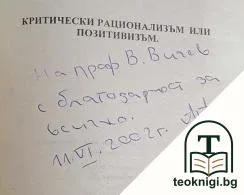 КРИТИЧЕСКИ РАЦИОНАЛИЗЪМ ИЛИ
ПОЗИТИВИЗЪМ.
На проф В. Вичев
с благодарност за
всичко.
11.VI.2002г.
teoknigi.bg